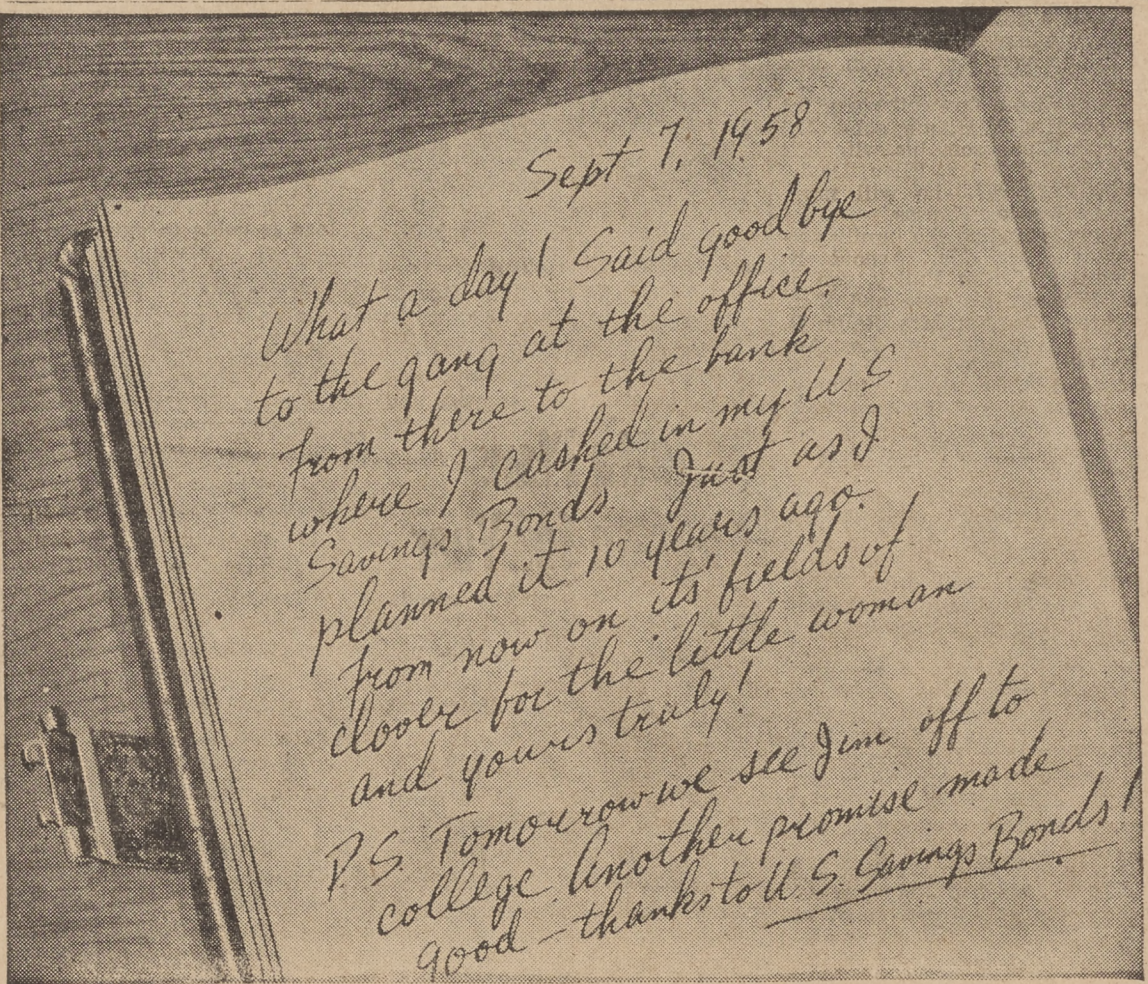 Sept 7, 1958
What a day! Said goodbye
to the gang at the office.
From there to the bank
where I cashed in my U.S
Savings Bonds. Just as I
planned it 10 years ago.
From now on its' fields of
clover for the little woman
and yours truly!
P.S. Tomorrow we see Jim off to
college. Another promise made
good - thanks to U.S. Savings Bonds!